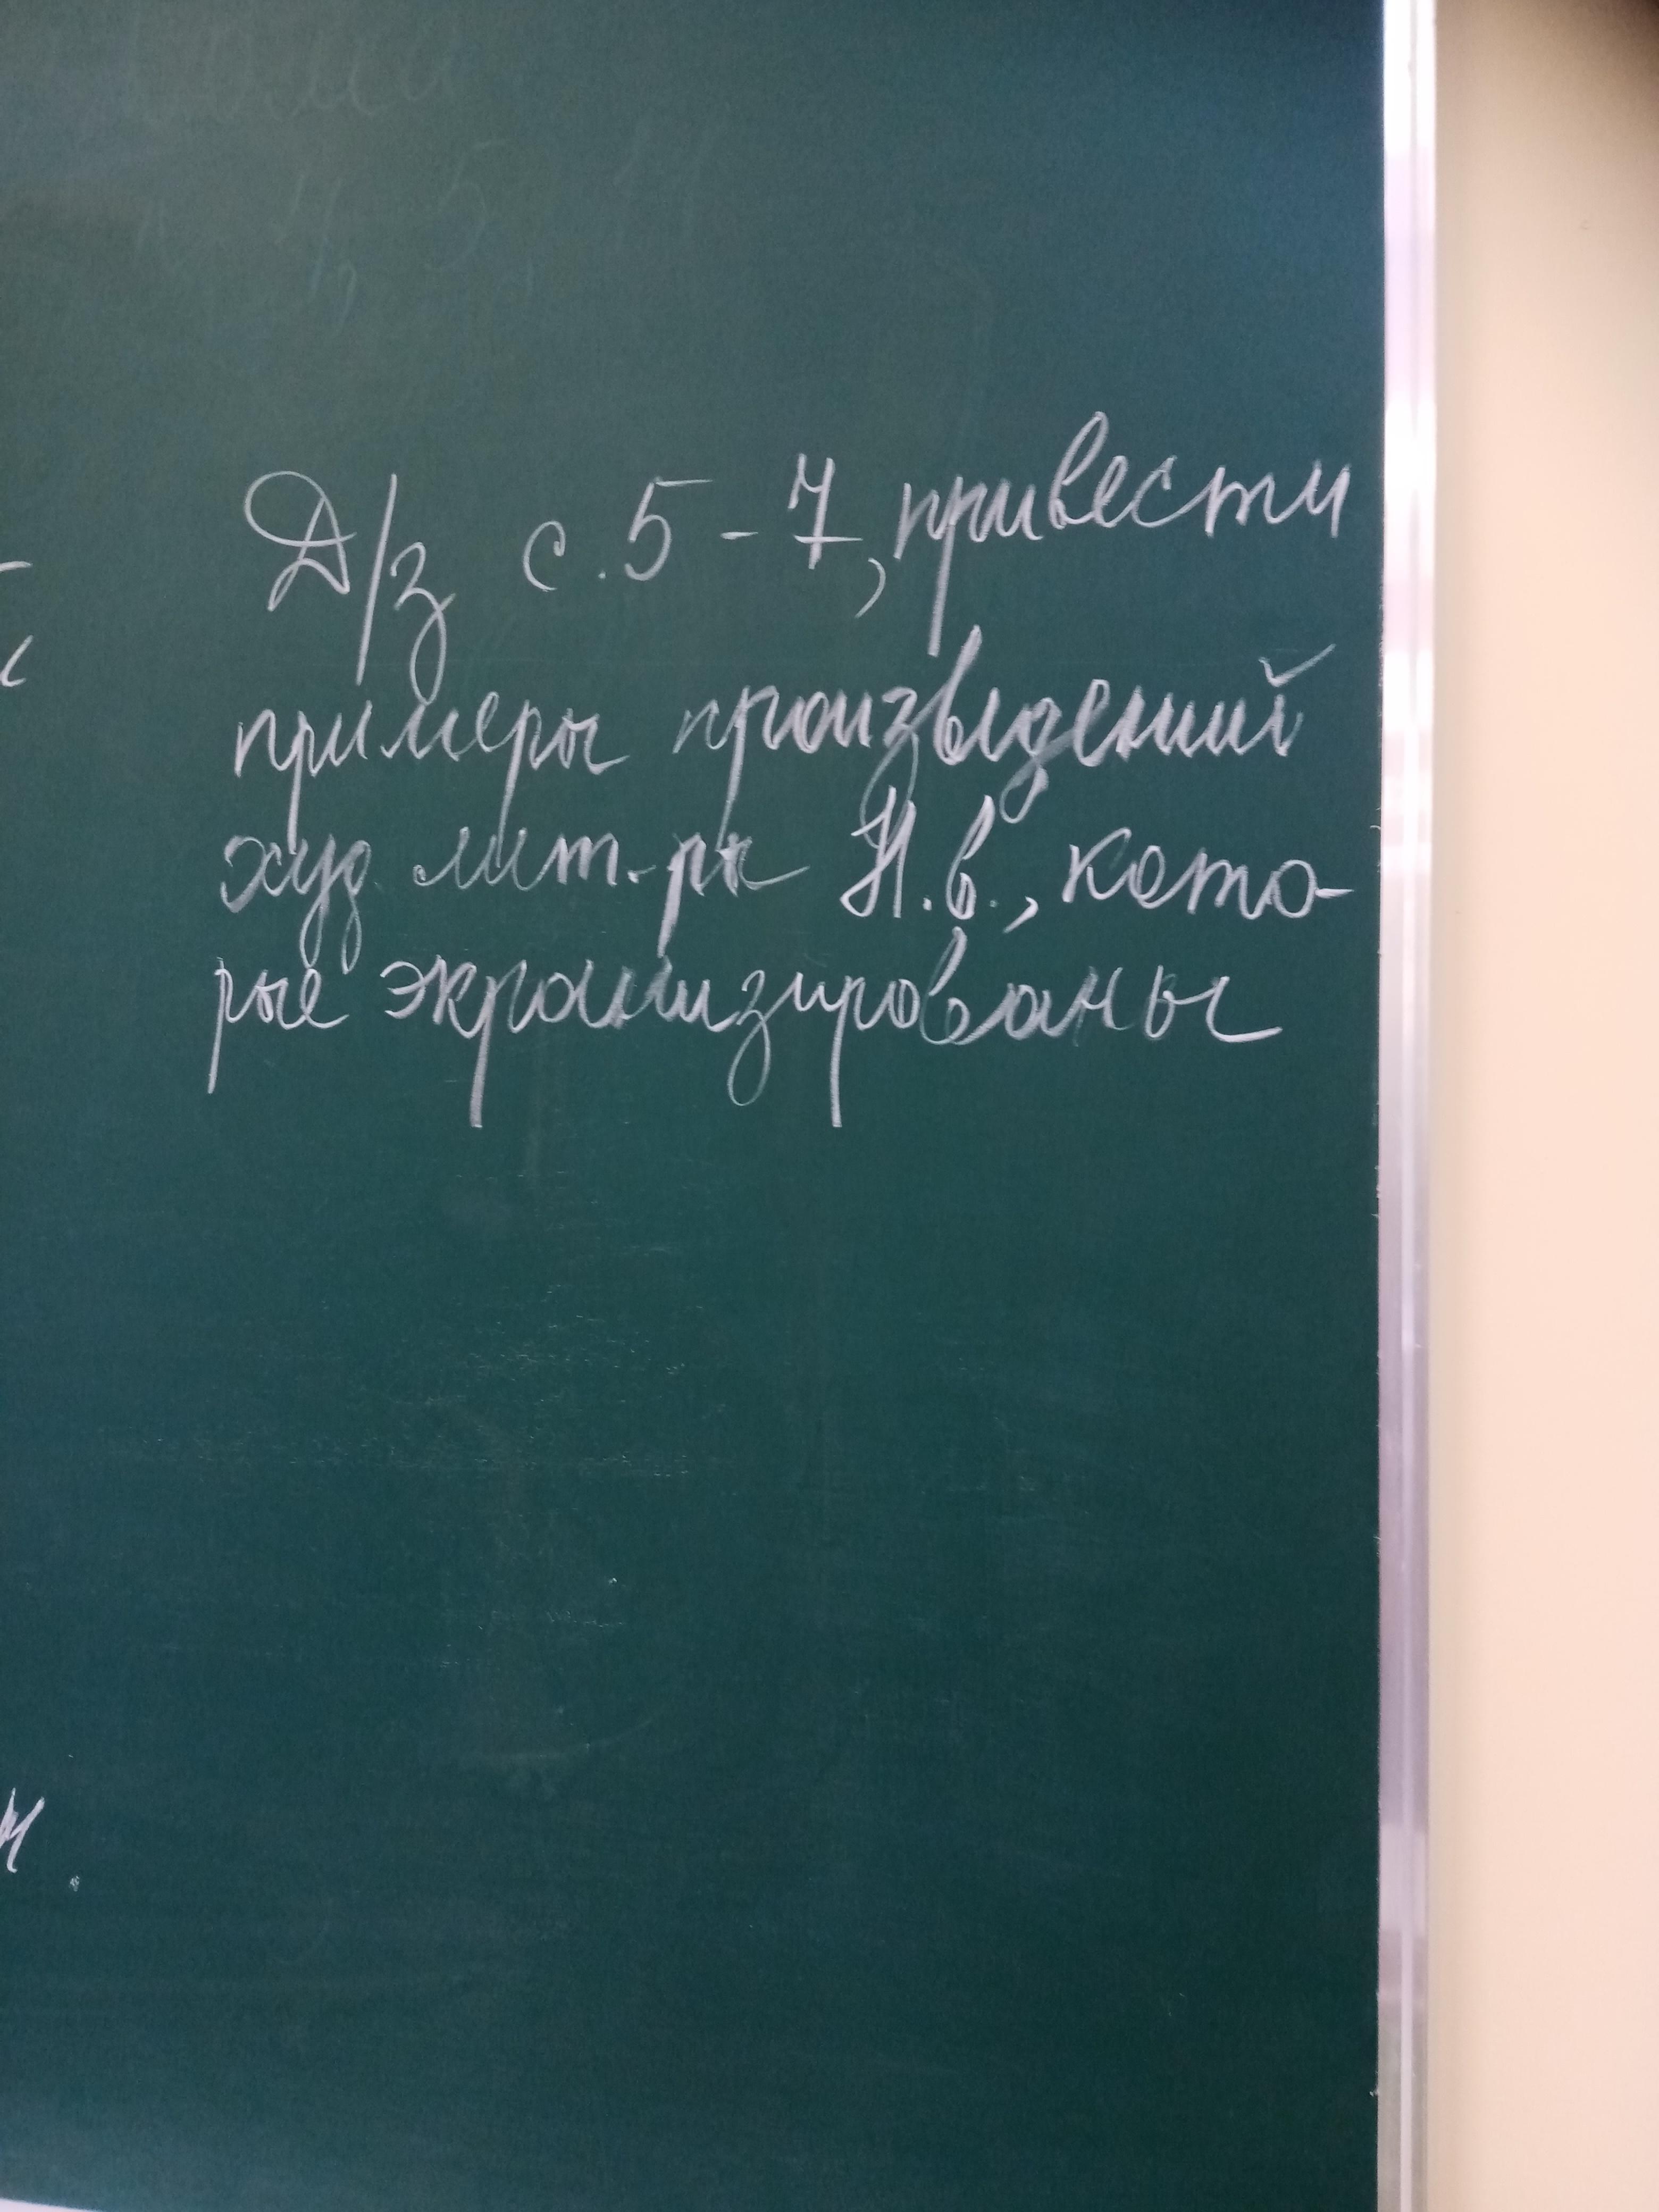 Д/з с. 5-7, привести
примеры произведений
худ. лит-ры Н.в., кото-
рые экранизированы